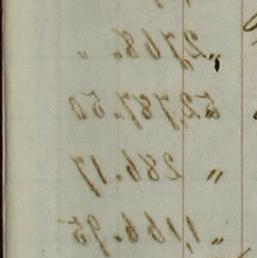 " 2,768. "
" 52787.50
" 286.17
" 1,166.95